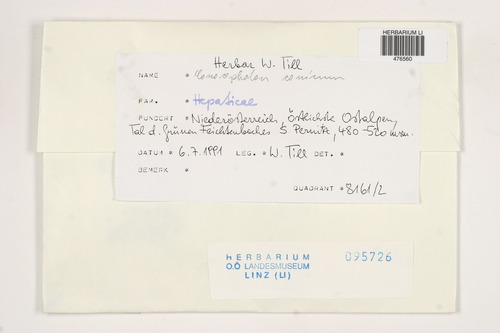 HERBARIUM LI
476560
Herbar W. Till
NAME * Conocephalon conicum
FAM. * Hepaticae
FUNDORT * Niederösterreich, östlichste Ostalpen,
Tal d. Feichtenbaches S. Pernitz, 480-520 msm.
DATUM * 6.7.1991 LEG. * W. Till DET. *
BEMERK *
QUADRANT * 8161/2
HERBARIUM 095726
O.Ö LANDESMUSEUM
LINZ (LI)